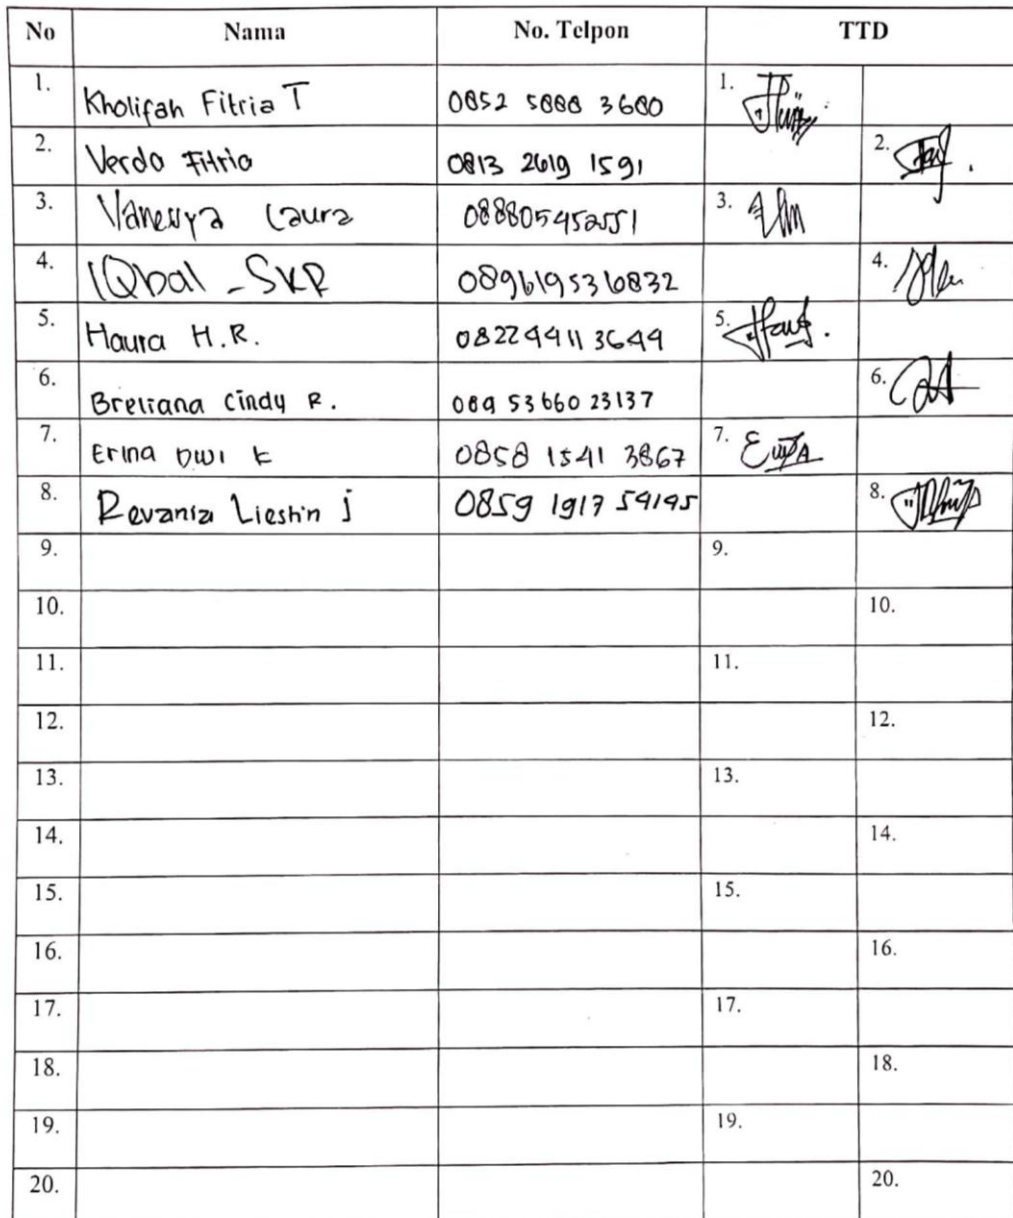 No Nama No. Telpon TTD
1. Kholifah Fitria T 0852 5888 3680 1.
2. Verda Fitria 0813 2619 1591 2.
3. Vanessya Laura 088805452551 3.
4. IQbal - SKR 089619536832 4.
5. Haura H.R. 082244113644 5.
6. Breliana Cindy R. 089 53660 23137 6.
7. Erina Dwi K 0858 1541 3867 7.
8. Revania Liestin j 0859 1917 54195 8.
9. 9.
10. 10.
11. 11.
12. 12.
13. 13.
14. 14.
15. 15.
16. 16.
17. 17.
18. 18.
19. 19.
20. 20.